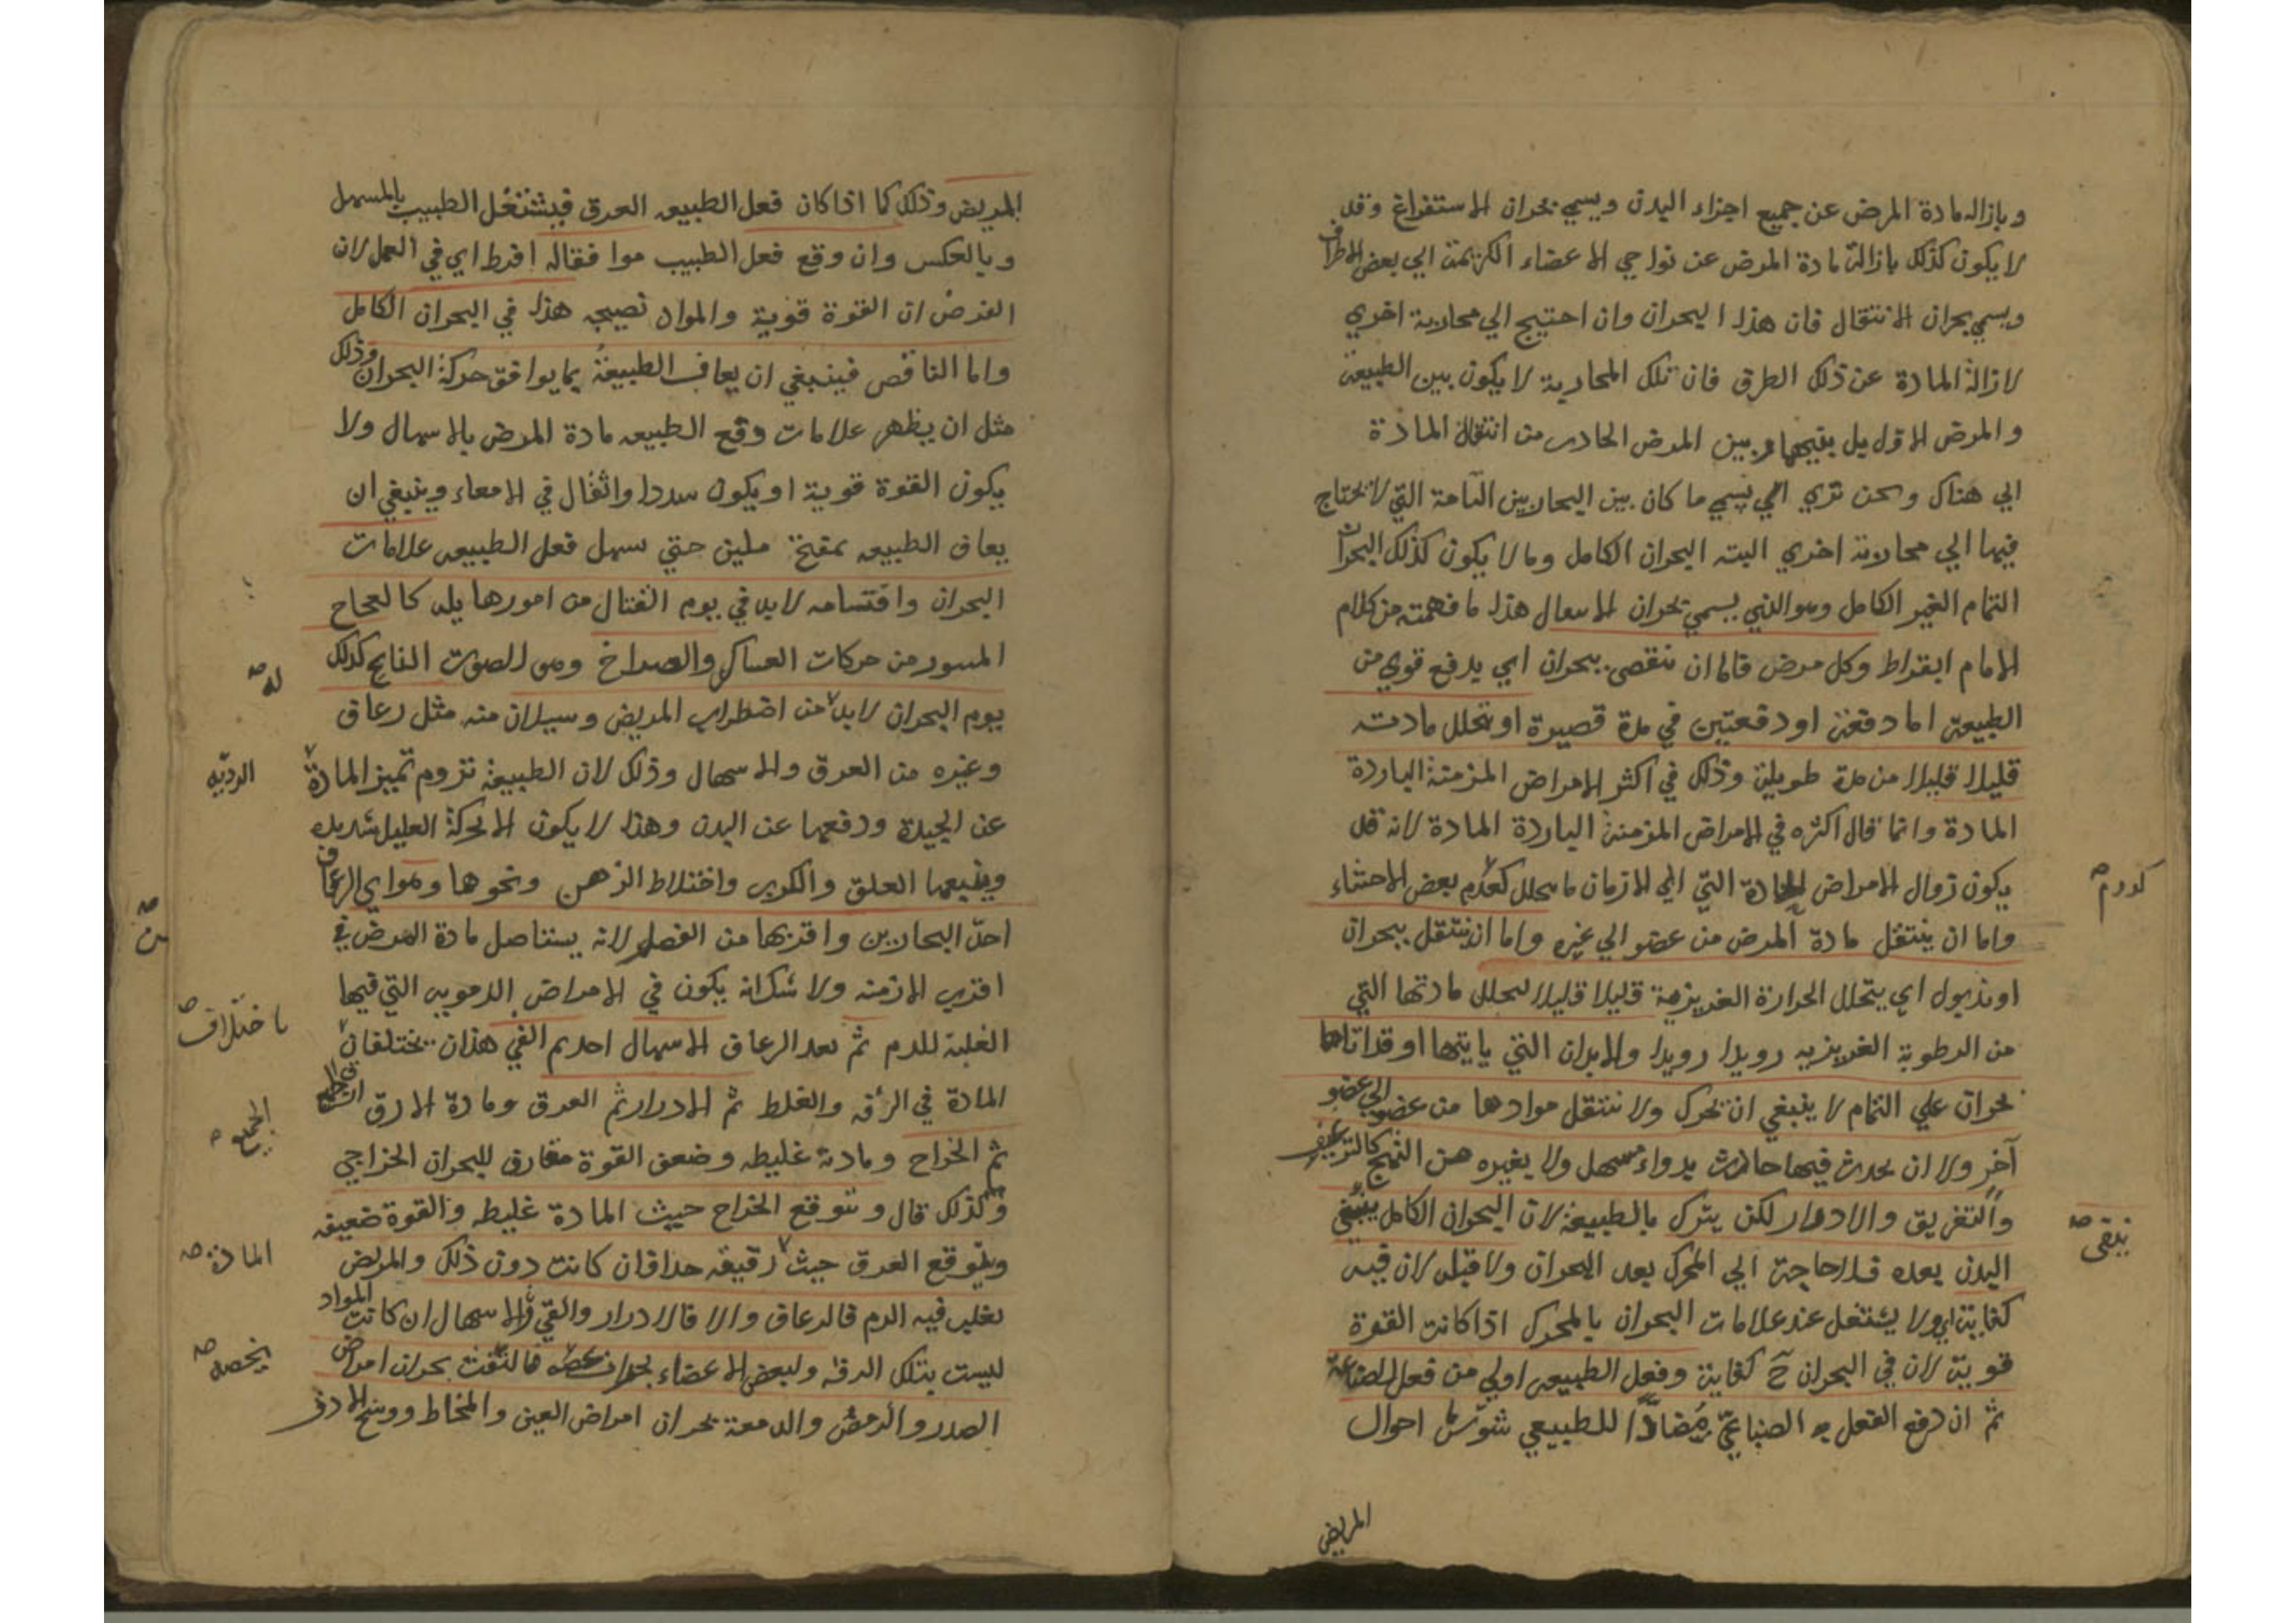 وبازاله مادة المرض عن جميع اجزاء البدن ويسمي بحران الاستفراغ وقد
لا يكون كذلك بازالة مادة المرض عن نواحي الاعضاء الكريمة الي بعض الاطراف
ويسمي بحران الانتقال فان هذا البحران وان احتيج الي محاربة اخري
لازالة المادة عن ذلك الطرق فان تلك المحاربة لا يكون بين الطبيعة
والمرض الاول بل بينهما وبين المرض الحادث من انتقال المادة
الي هناك ونحن نري ان يسمي ما كان بين البحارين التامة التي لا تحتاج
فيها الي محاربة اخري البته البحران الكامل وما لا يكون كذلك البحران
التمام الغير الكامل وهو الذي يسمي بحران الاسعال هذا ما فهمته من كلام
الامام ابقراط وكل مرض فاما ان ينقصى ببحران اي بدفع قوي من
الطبيعة اما دفعة او دفعتين في مدة قصيرة او بتحلل مادته
قليلا قليلا من مدة طويلة وذلك في اكثر الامراض المزمنة الباردة
المادة وانما قال اكثره في الامراض المزمنة الباردة المادة لانه قد
يكون زوال الامراض الحادة التي الي الازمان ما بتحلل كعدم بعض الاحشاء
واما ان ينتقل مادة المرض من عضو الي غيره واما ان ينتقل ببحران
او بذبول اي يتحلل الحرارة الغريزية قليلا قليلا لتحلل مادتها التي
من الرطوبة الغريزيه رويدا رويدا والابدان التي ياتيها او قد اتاها
بحران علي التمام لا ينبغي ان تحرك ولا تنتقل موادها من عضو الي عضو
آخر ولا ان يحدث فيها حادث بدواء مسهل ولا بغيره من التهيج كالترعيف
والتغريق والادرار لكن يترك بالطبيعة لان البحران الكامل ينبغي
البدن بعده فلا حاجة الي المحرك بعد البحران ولا قبله لان فيه
كفاية اي ولا يشتغل عند علامات البحران بالمحرك اذا كانت القوة
قوية لان في البحران ح كفاية وفعل الطبيعه اولي من فعل الصناعة
ثم ان وقع الفعل الصناعي مضادًا للطبيعي شوش احوال
المريض
كدرم
ينقى
المريض وذلك كما اذا كان فعل الطبيعه العرق فيشتغل الطبيب بالمسهل
وبالعكس وان وقع فعل الطبيب موافقا له افرط اي في العمل لان
الفرض ان القوة قوية والمواد نضيجه هذا في البحران الكامل
واما الناقص فينبغي ان يعاف الطبيعة بما يوافق حركة البحران وذلك
مثل ان يظهر علامات وقع الطبيعه مادة المرض بالاسهال ولا
يكون القوة قوية او يكون سددا واثفال في الامعاء وينبغي ان
يعاف الطبيعه بمفتح ملين حتي سهل فعل الطبيعه علامات
البحران واقتسامه لا بد في يوم القتال من امور هايله كالعجاج
المسور من حركات العساكر والصراخ وهو الصوت الناتج كذلك
يوم البحران لا بد من اضطراب المريض وسيلان منه مثل رعاف
وغيره من العرق والاسهال وذلك لان الطبيعة تروم تميز المادة
عن الجيدة ودفعها عن البدن وهذا لا يكون الا بحركة العليل شديدة
ويتبعها القلق والكرب واختلاط الذهن ونحوها وهو اي الرعاف
احدّ البحارين واقربها من الفصل لانه يستاصل مادة المرض في
اقرب الازمنه ولا شك انه يكون في الامراض الدمويه التي فيها
الغلبة للدم ثم بعد الرعاف الاسهال احدم القي هذان يختلفان
المادة في الرقه والغلظ ثم الادرار ثم العرق ومادة الارق
ثم الخراج ومادته غليظه وضعف القوة مفارق للبحران الخراجي
وكذلك قال ونتوقع الخراج حيث المادة غليظه والقوة ضعيفه
ويتوقع العرق حيث رقيقه جدا فان كانت دون ذلك والمريض
يغلب فيه الدم فالرعاف والا فالادرار والقي والاسهال ان كانت المواد
ليست بتلك الرقه ولبعض الاعضاء بحران فالنفث بحران امراض
الصدر والرمص والدمعة بحران امراض العين والمخاط ووسخ الاذن
له
الرديه
من
باختلاف
الجميع
المادة
يخصه